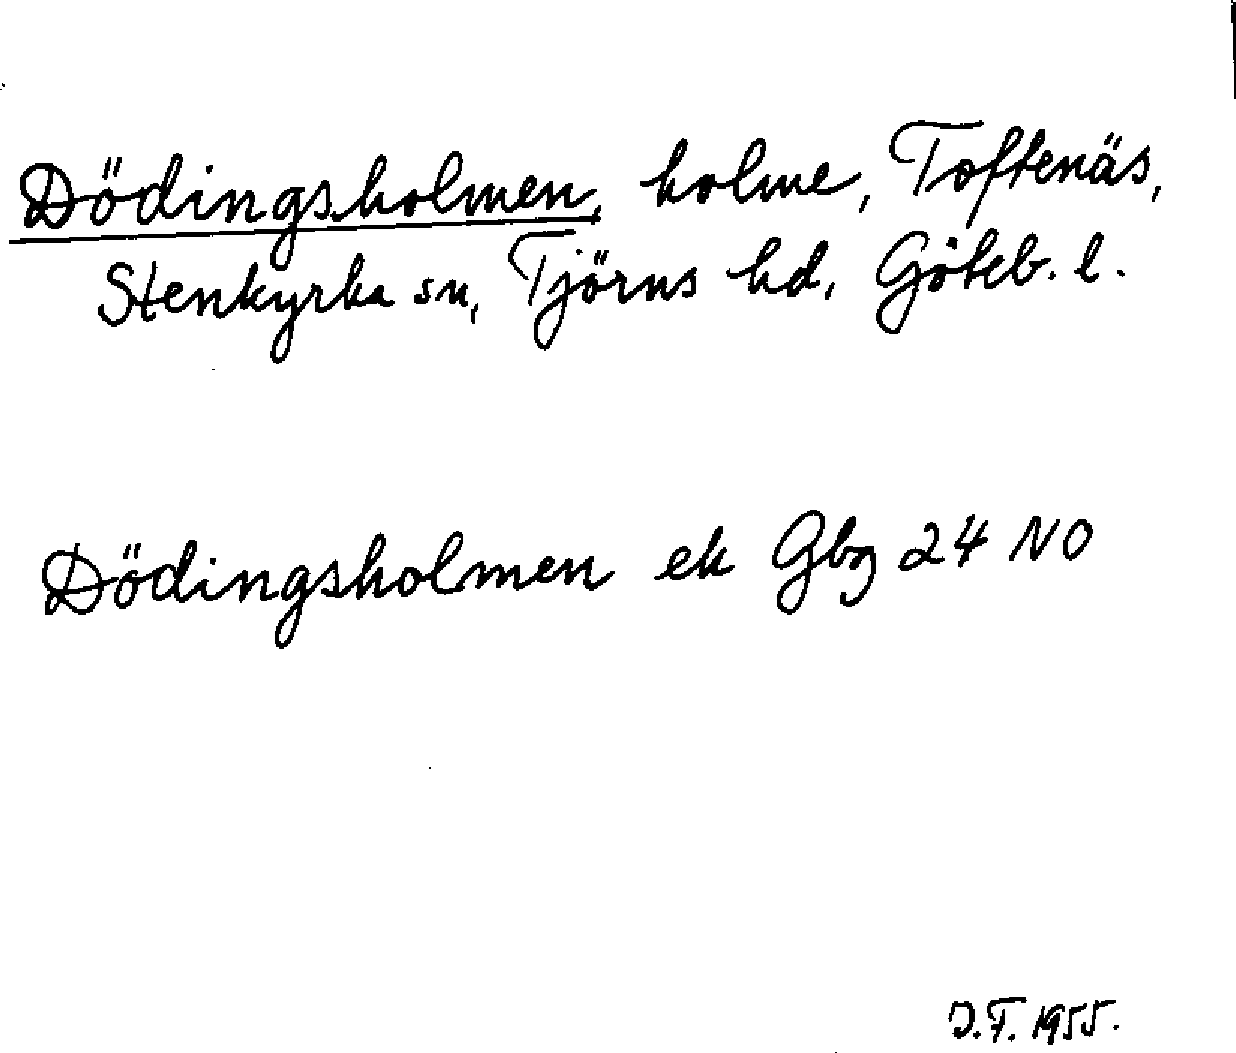 Dödingsholmen, holme, Toftenäs,
Stenkyrka sn, Tjörns hd, Göteb. l.
Dödingsholmen ek Gbg 24 NO
J.F. 1955.